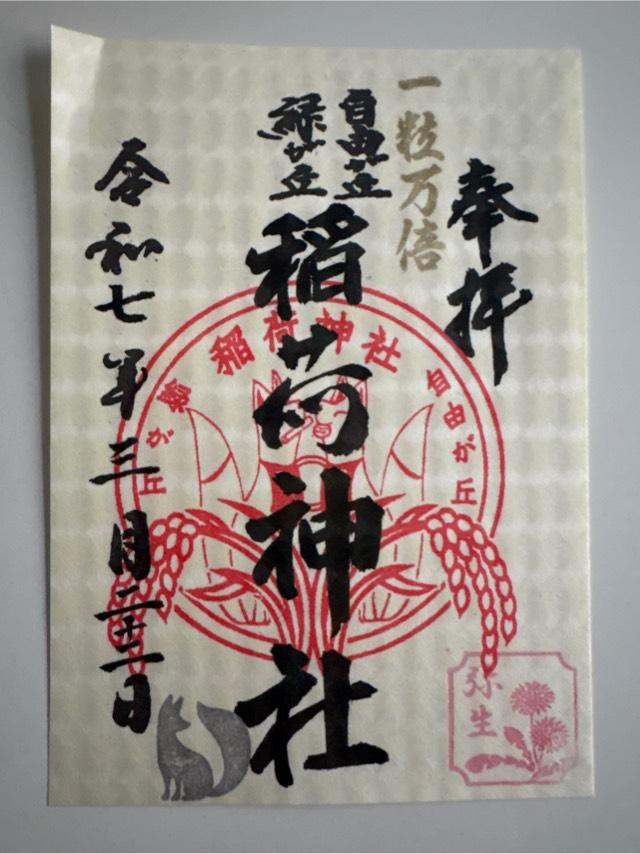 奉拝
一粒万倍
自由が丘
緑が丘
稲荷神社
令和七年三月二十一日
稲荷神社
自由が丘
緑が丘
弥生